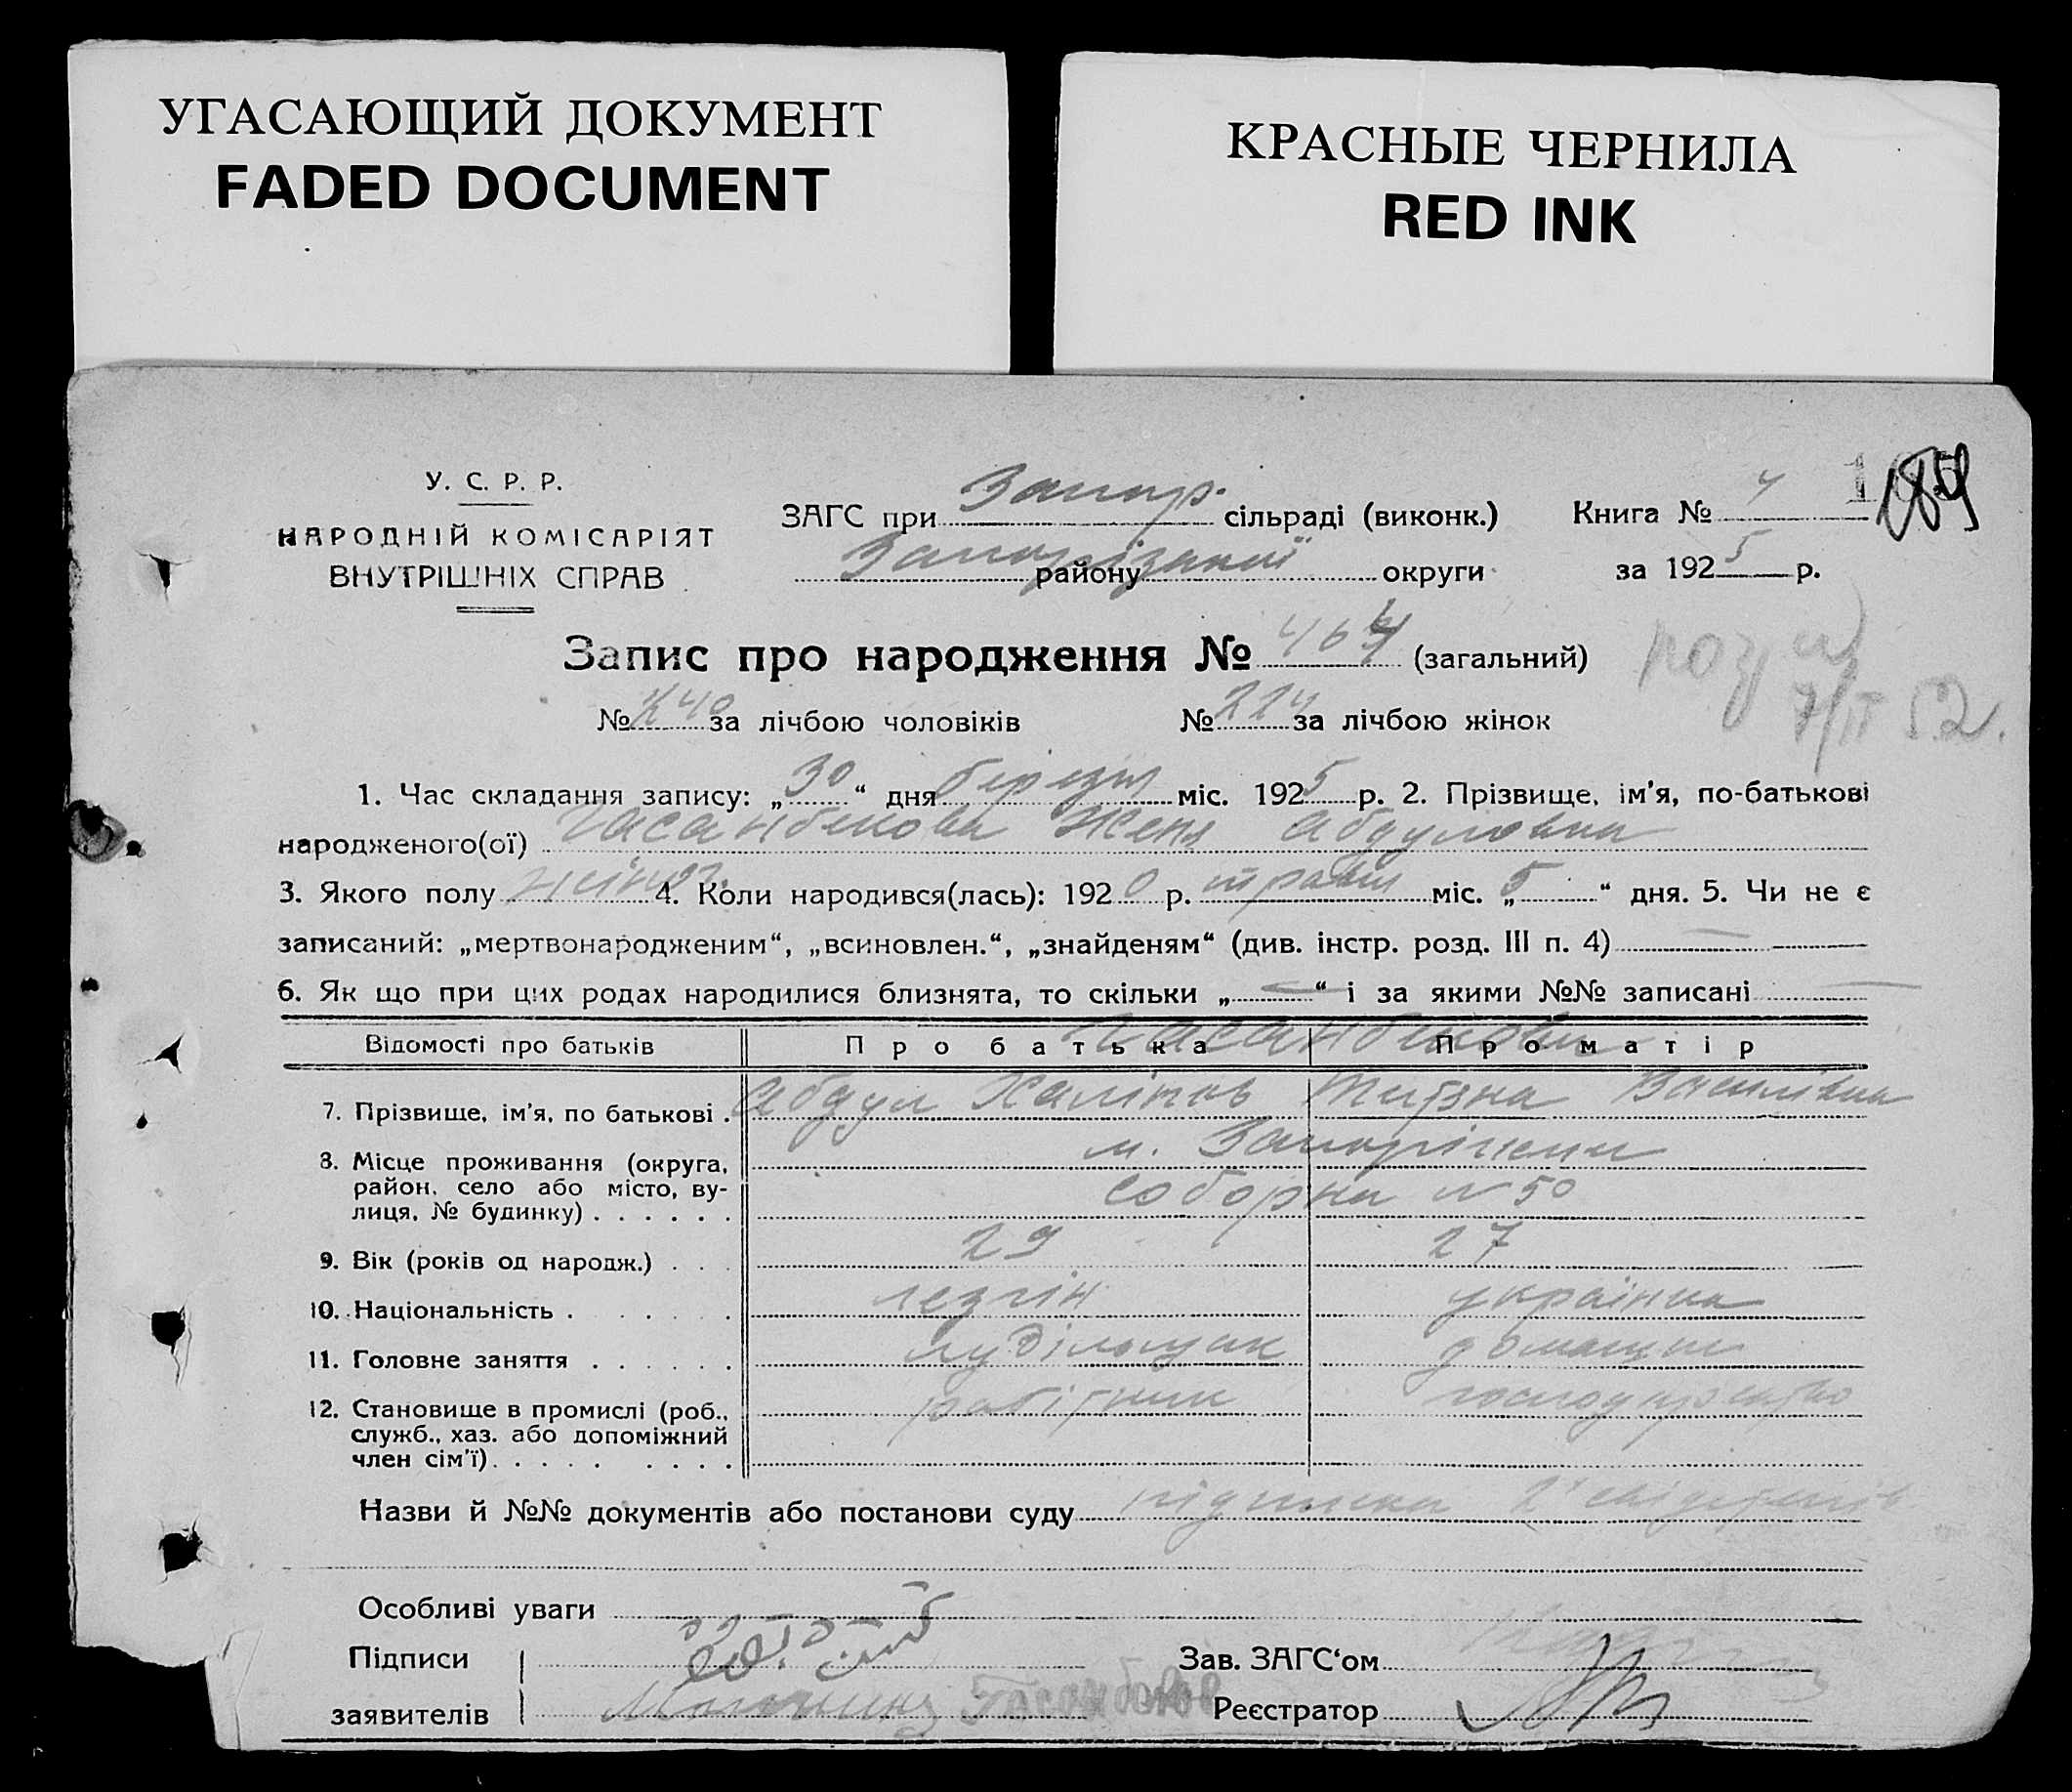 УГАСАЮЩИЙ ДОКУМЕНТ
FADED DOCUMENT
КРАСНЫЕ ЧЕРНИЛА
RED INK
У. С. Р. Р.
НАРОДНІЙ КОМІСАРІЯТ
ВНУТРІШНІХ СПРАВ
ЗАГС при Запор. сільраді (виконк.)
району Запорізької округи
Книга № 4
за 1925 р.
189
Запис про народження № 464 (загальний)
№ 240 за лічбою чоловіків № 224 за лічбою жінок
7/II 52.
1. Час складання запису: „30“ дня березня міс. 1925 р. 2. Прізвище, ім'я, по-батькові
народженого(ої) Гасанбекова Женя Абдуловна
3. Якого полу жіноч. 4. Коли народився(лась): 1920 р. травня міс. „5“ дня. 5. Чи не є
записаний: „мертвонародженим“, „всиновлен.“, „знайденям“ (див. інстр. розд. III п. 4) —
6. Як що при цих родах народилися близнята, то скільки „—“ і за якими №№ записані —
Відомості про батьків Про батька Про матір
Гасанбекови
7. Прізвище, ім'я, по батькові . Абдул Халіков Тетяна Василівна
8. Місце проживання (округа, м. Запоріжжя
район, село або місто, ву- Соборна № 50
лиця, № будинку) . . . . . .
9. Вік (років од народж.) . . . 29 27
10. Національність . . . . . . лезгін українка
11. Головне заняття . . . . . . лудільщик домашнє
12. Становище в промислі (роб., робітник господарство
служб., хаз. або допоміжний
член сім'ї) . . . . . . . . .
Назви й №№ документів або постанови суду підписка 2х свідителів
Особливі уваги
Підписи
заявителів Гасанбеков
Зав. ЗАГС‘ом
Реєстратор